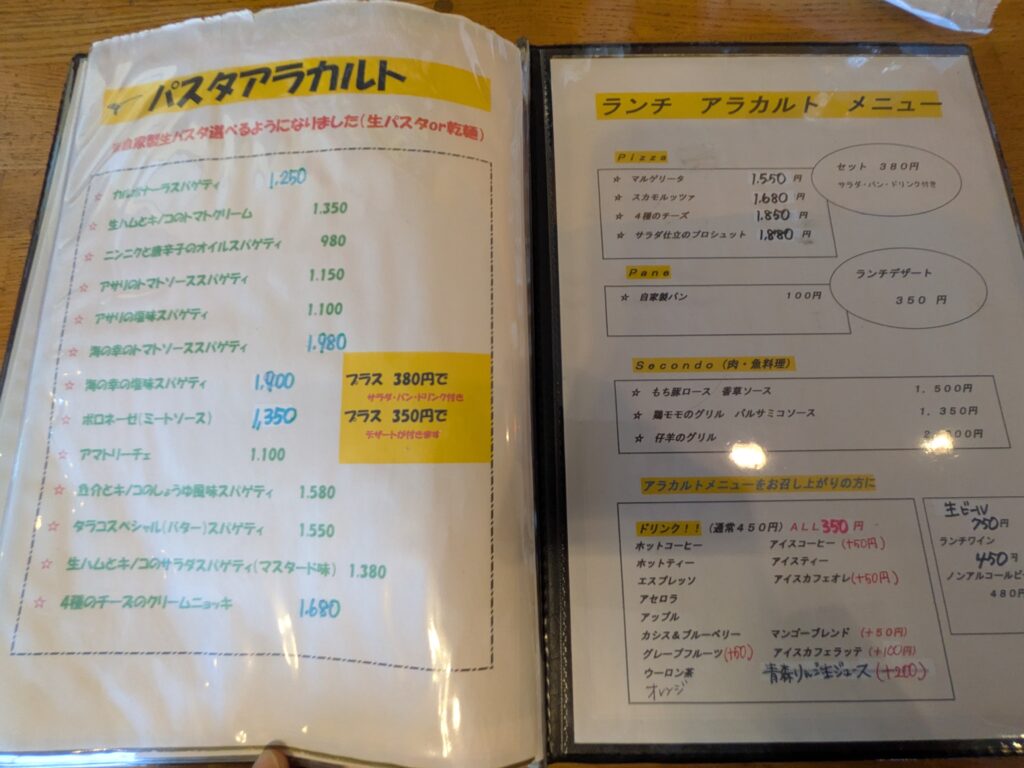 パスタアラカルト
自家製生パスタ選べるようになりました(生パスタor乾麺)
☆ カルボナーラスパゲティ 1,250
☆ 生ハムとキノコのトマトクリーム 1.350
☆ ニンニクと唐辛子のオイルスパゲティ 980
☆ アサリのトマトソーススパゲティ 1.150
☆ アサリの塩味スパゲティ 1.100
☆ 海の幸のトマトソーススパゲティ 1,980
☆ 海の幸の塩味スパゲティ 1,900
☆ ボロネーゼ(ミートソース) 1,350
☆ アマトリーチェ 1.100
☆ 魚介とキノコのしょうゆ風味スパゲティ 1.580
☆ タラコスペシャル(バター)スパゲティ 1.550
☆ 生ハムとキノコのサラダスパゲティ(マスタード味) 1.380
☆ 4種のチーズのクリームニョッキ 1.680
プラス 380円で
サラダ・パン・ドリンク付き
プラス 350円で
デザートが付きます
ランチ アラカルト メニュー
Pizza
☆ マルゲリータ 1.550 円
☆ スカモルッツァ 1.680 円
☆ 4種のチーズ 1.850 円
☆ サラダ仕立のプロシュット 1,880 円
セット 380円
サラダ・パン・ドリンク付き
Pane
☆ 自家製パン 100円
ランチデザート
350 円
Secondo(肉・魚料理)
☆ もち豚ロース 香草ソース 1.500円
☆ 鶏モモのグリル バルサミコソース 1.350円
☆ 仔羊のグリル
アラカルトメニューをお召し上がりの方に
ドリンク!!(通常450円)ALL350円
ホットコーヒー アイスコーヒー(+50円)
ホットティー アイスティー
エスプレッソ アイスカフェオレ(+50円)
アセロラ
アップル
カシス&ブルーベリー マンゴーブレンド (+50円)
グレープフルーツ(+50) アイスカフェラッテ (+100円)
ウーロン茶 青森りんご生ジュース(+200)
オレンジ
生ビール
750円
ランチワイン
450円
ノンアルコールビ
480円